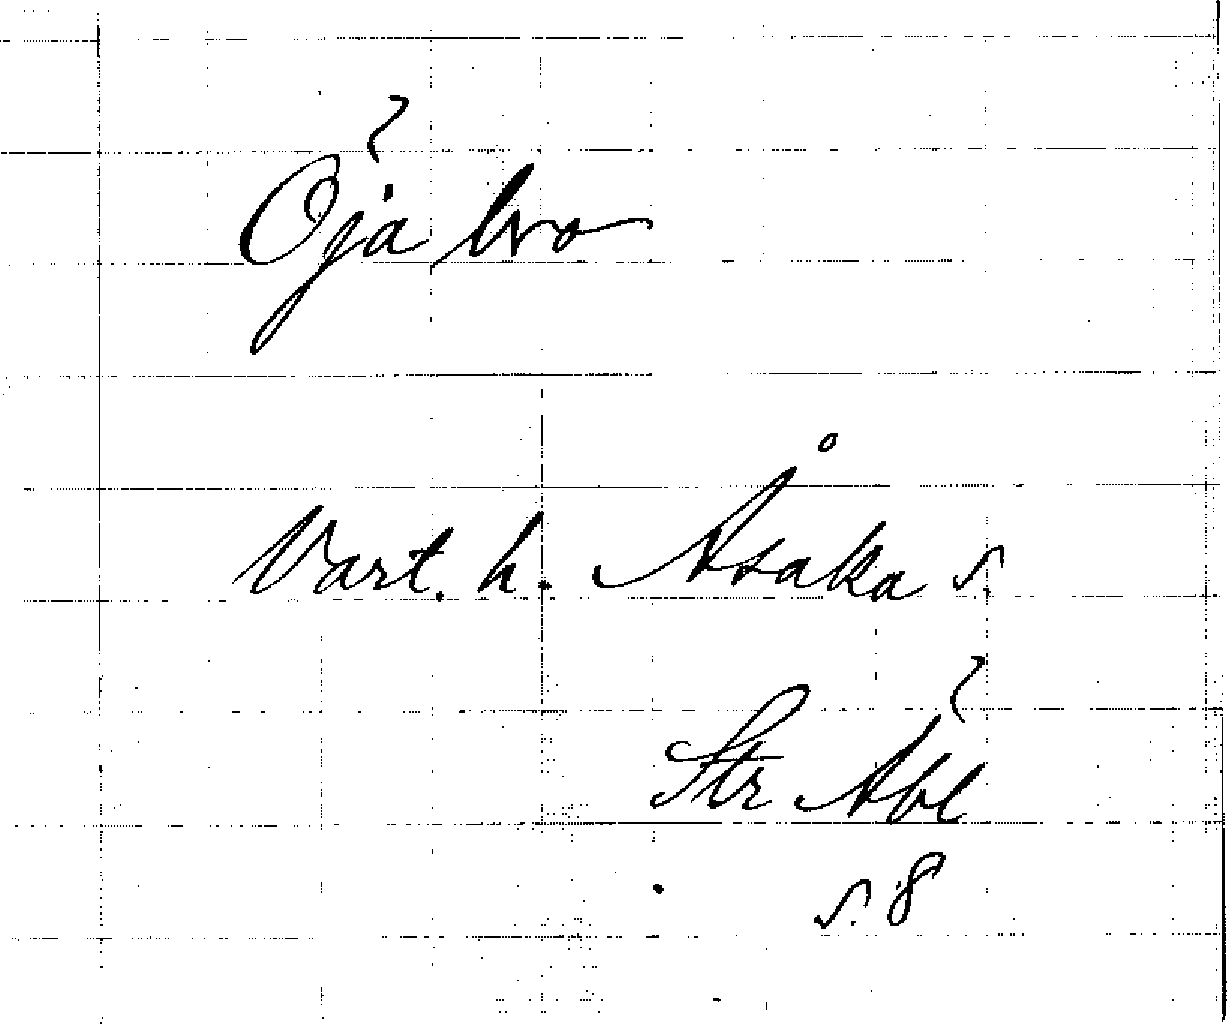 Öja bro
Vart. h. Åsaka s.
Str Äbl
s. 8